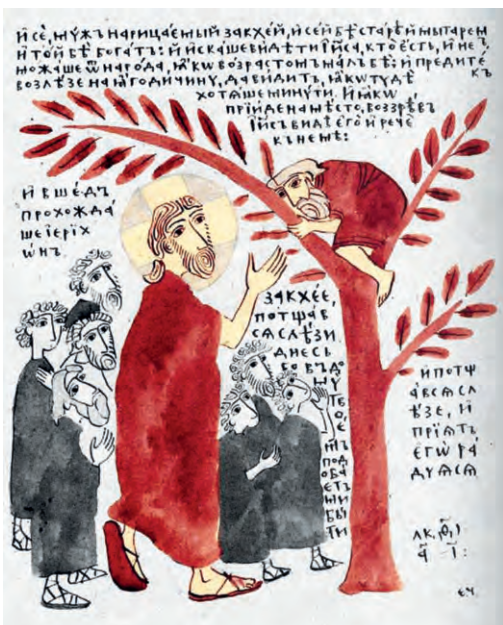 И҆ сѐ, мꙋ́жъ нарица́емый закхе́й, и҆ се́й бѣ̀ старѣ́й мытаремъ
и҆ то́й бѣ̀ бога́тъ: и҆ и҆ска́ше ви́дѣти і҆и҃са, кто̀ є҆́сть, и҆ не
можа́ше ѿ наро́да, ꙗ҆́кѡ во́зрастомъ ма́лъ бѣ̀: и҆ предите́къ
возлѣ́зе на ꙗ҆годичинꙋ, да ви́дитъ, ꙗ҆́кѡ тꙋдѣ̀
хотѧ́ше минꙋ́ти. и҆ ꙗ҆́кѡ
прїи́де на мѣ́сто, воззрѣ́въ
і҆и҃съ ви́дѣ є҆го̀ и҆ речѐ
къ немꙋ̀:
И҆ вше́дъ
прохожда́
ше і҆ері́х
ѡ́нъ.
закхе́е,
потща́в
сѧ слѣ́зи
дне́сь
бо въ до
мꙋ̀
тво
е́
мъ
под
оба́
етъ
ми
бы́
ти
и҆ потщ
а́всѧ сл
ѣ́зе, и҆
прїѧ́тъ
є҆гѡ̀ ра́
дꙋѧсѧ
лк, ѳ҃і
а҃ - і҃:
е.ч.